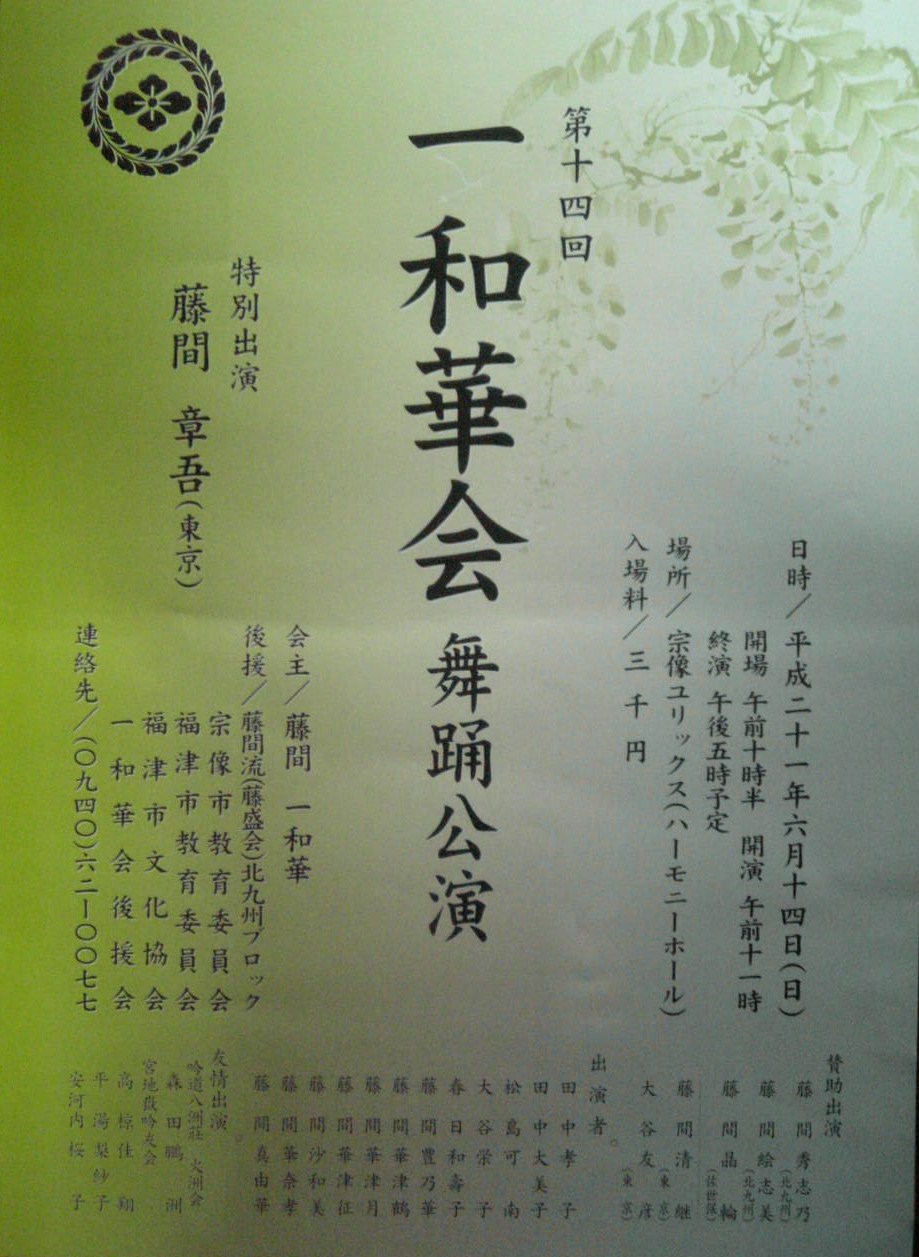 第十四回
一和華会 舞踊公演
日時／平成二十一年六月十四日(日)
開場 午前十時半 開演 午前十一時
終演 午後五時予定
場所／宗像ユリックス(ハーモニーホール)
入場料／三千円
特別出演
藤間 章吾(東京)
会主／藤間 一和華
後援／藤間流(藤盛会)北九州ブロック
宗像市教育委員会
福津市教育委員会
福津市文化協会
一和華会後援会
連絡先／(〇九四〇)六二ー〇〇七七
賛助出演
藤間秀志乃(北九州)
藤間絵志美(北九州)
藤間晶輪(佐世保)
藤間清継(東京)
大谷友彦(東京)
出演者。
田中孝子
田中大美子
松島可南
大谷栄子
春日和壽子
藤間豊乃華
藤間華津鶴
藤間華津月
藤間華津征
藤間沙和美
藤間華奈孝
藤間真由華
友情出演。
吟道八洲荘 火洲会
森田鵬洲
宮地嶽吟友会
高椋佳翔
平湯梨紗子
安河内桜子